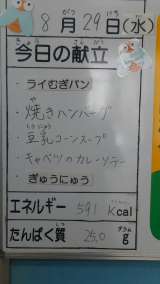 8月29日(水)
今日の献立
・ライむぎパン
・焼きハンバーグ
・豆乳コーンスープ
・キャベツのカレーソテー
・ぎゅうにゅう
エネルギー 591 Kcal
たんぱく質 25.0 g